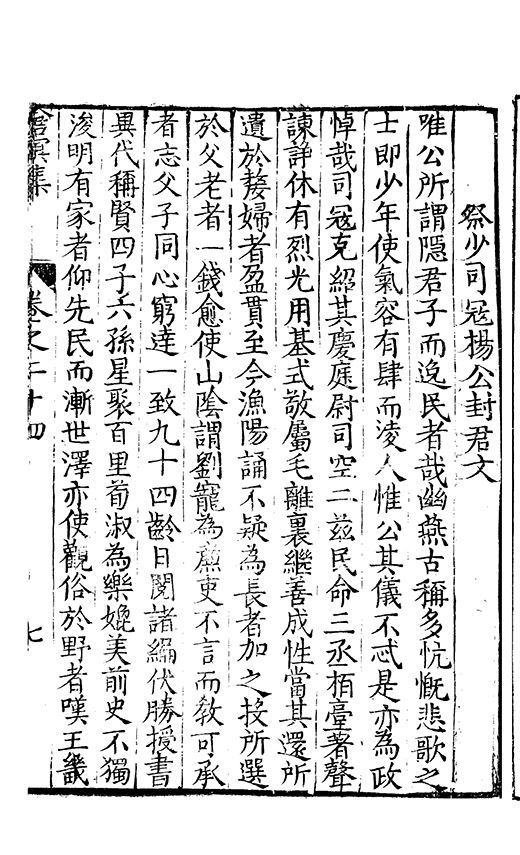 祭少司寇楊公封君文
唯公所謂隱君子而逸民者哉幽燕古稱多忼慨悲歌之
士即少年使氣容有肆而淩人惟公其儀不忒是亦為政
悼哉司寇克紹其慶庭尉司空二茲民命三丞栢臺著聲
諫諍休有烈光用基式敬屬毛離裏繼善成性當其還所
遺於嫠婦者盈貫至今漁陽誦不疑為長者加之投所選
於父老者一錢愈使山陰謂劉寵為亷吏不言而教可承
者志父子同心窮達一致九十四齡日閱諸編伏勝授書
異代稱賢四子六孫星聚百里荀淑為樂媲美前史不獨
浚明有家者仰先民而漸世澤亦使觀俗於野者嘆王畿
滄溟集
卷之二十四
七